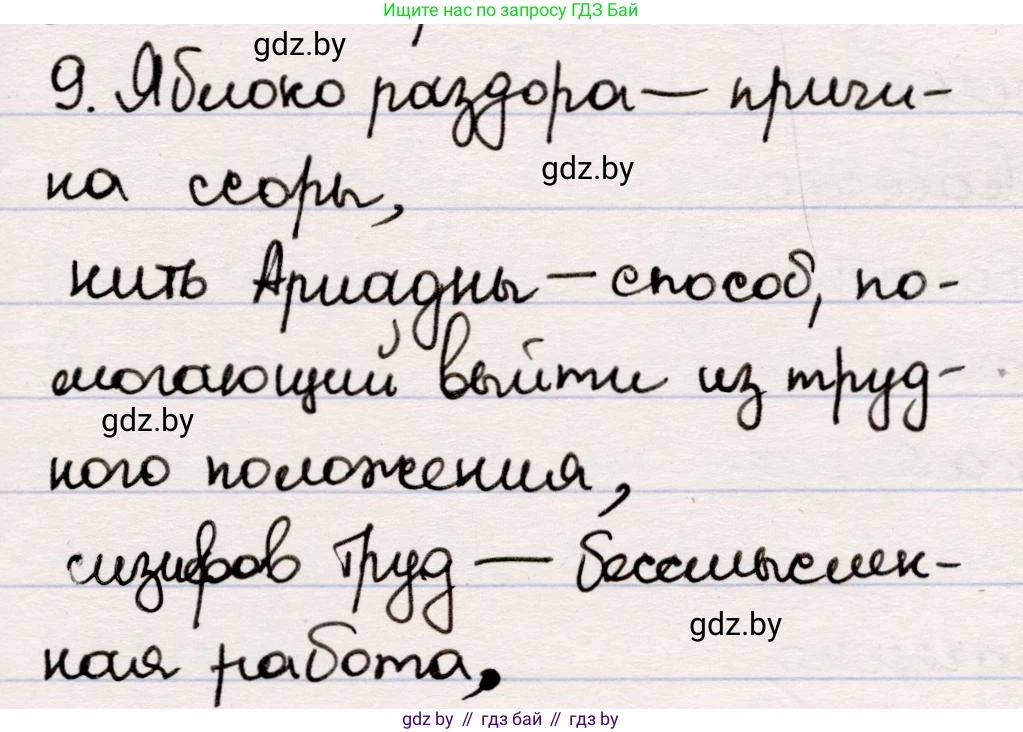 Ищите нас по запросу ГДЗ Бай
gdz.by
9. Яблоко раздора — причи-
gdz.by
на ссоры,
нить Ариадны — способ, по-
могающий выйти из труд-
gdz.by
ного положения,
сизифов труд — бессмыслен-
gdz.by
ная работа,
gdz.by // гдз бай // гдз.by